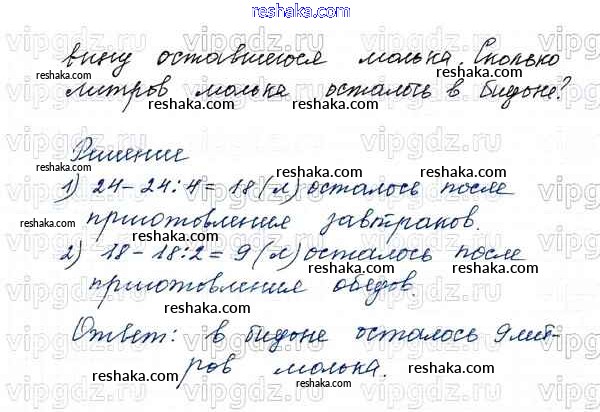 reshaka.com
вину оставшегося молока. Сколько
литров молока осталось в бидоне?
Решение
1) 24-24:4=18(л) осталось после
приготовления завтраков.
2) 18-18:2=9(л) осталось после
приготовления обедов.
Ответ: в бидоне осталось 9 лит-
ров молока.